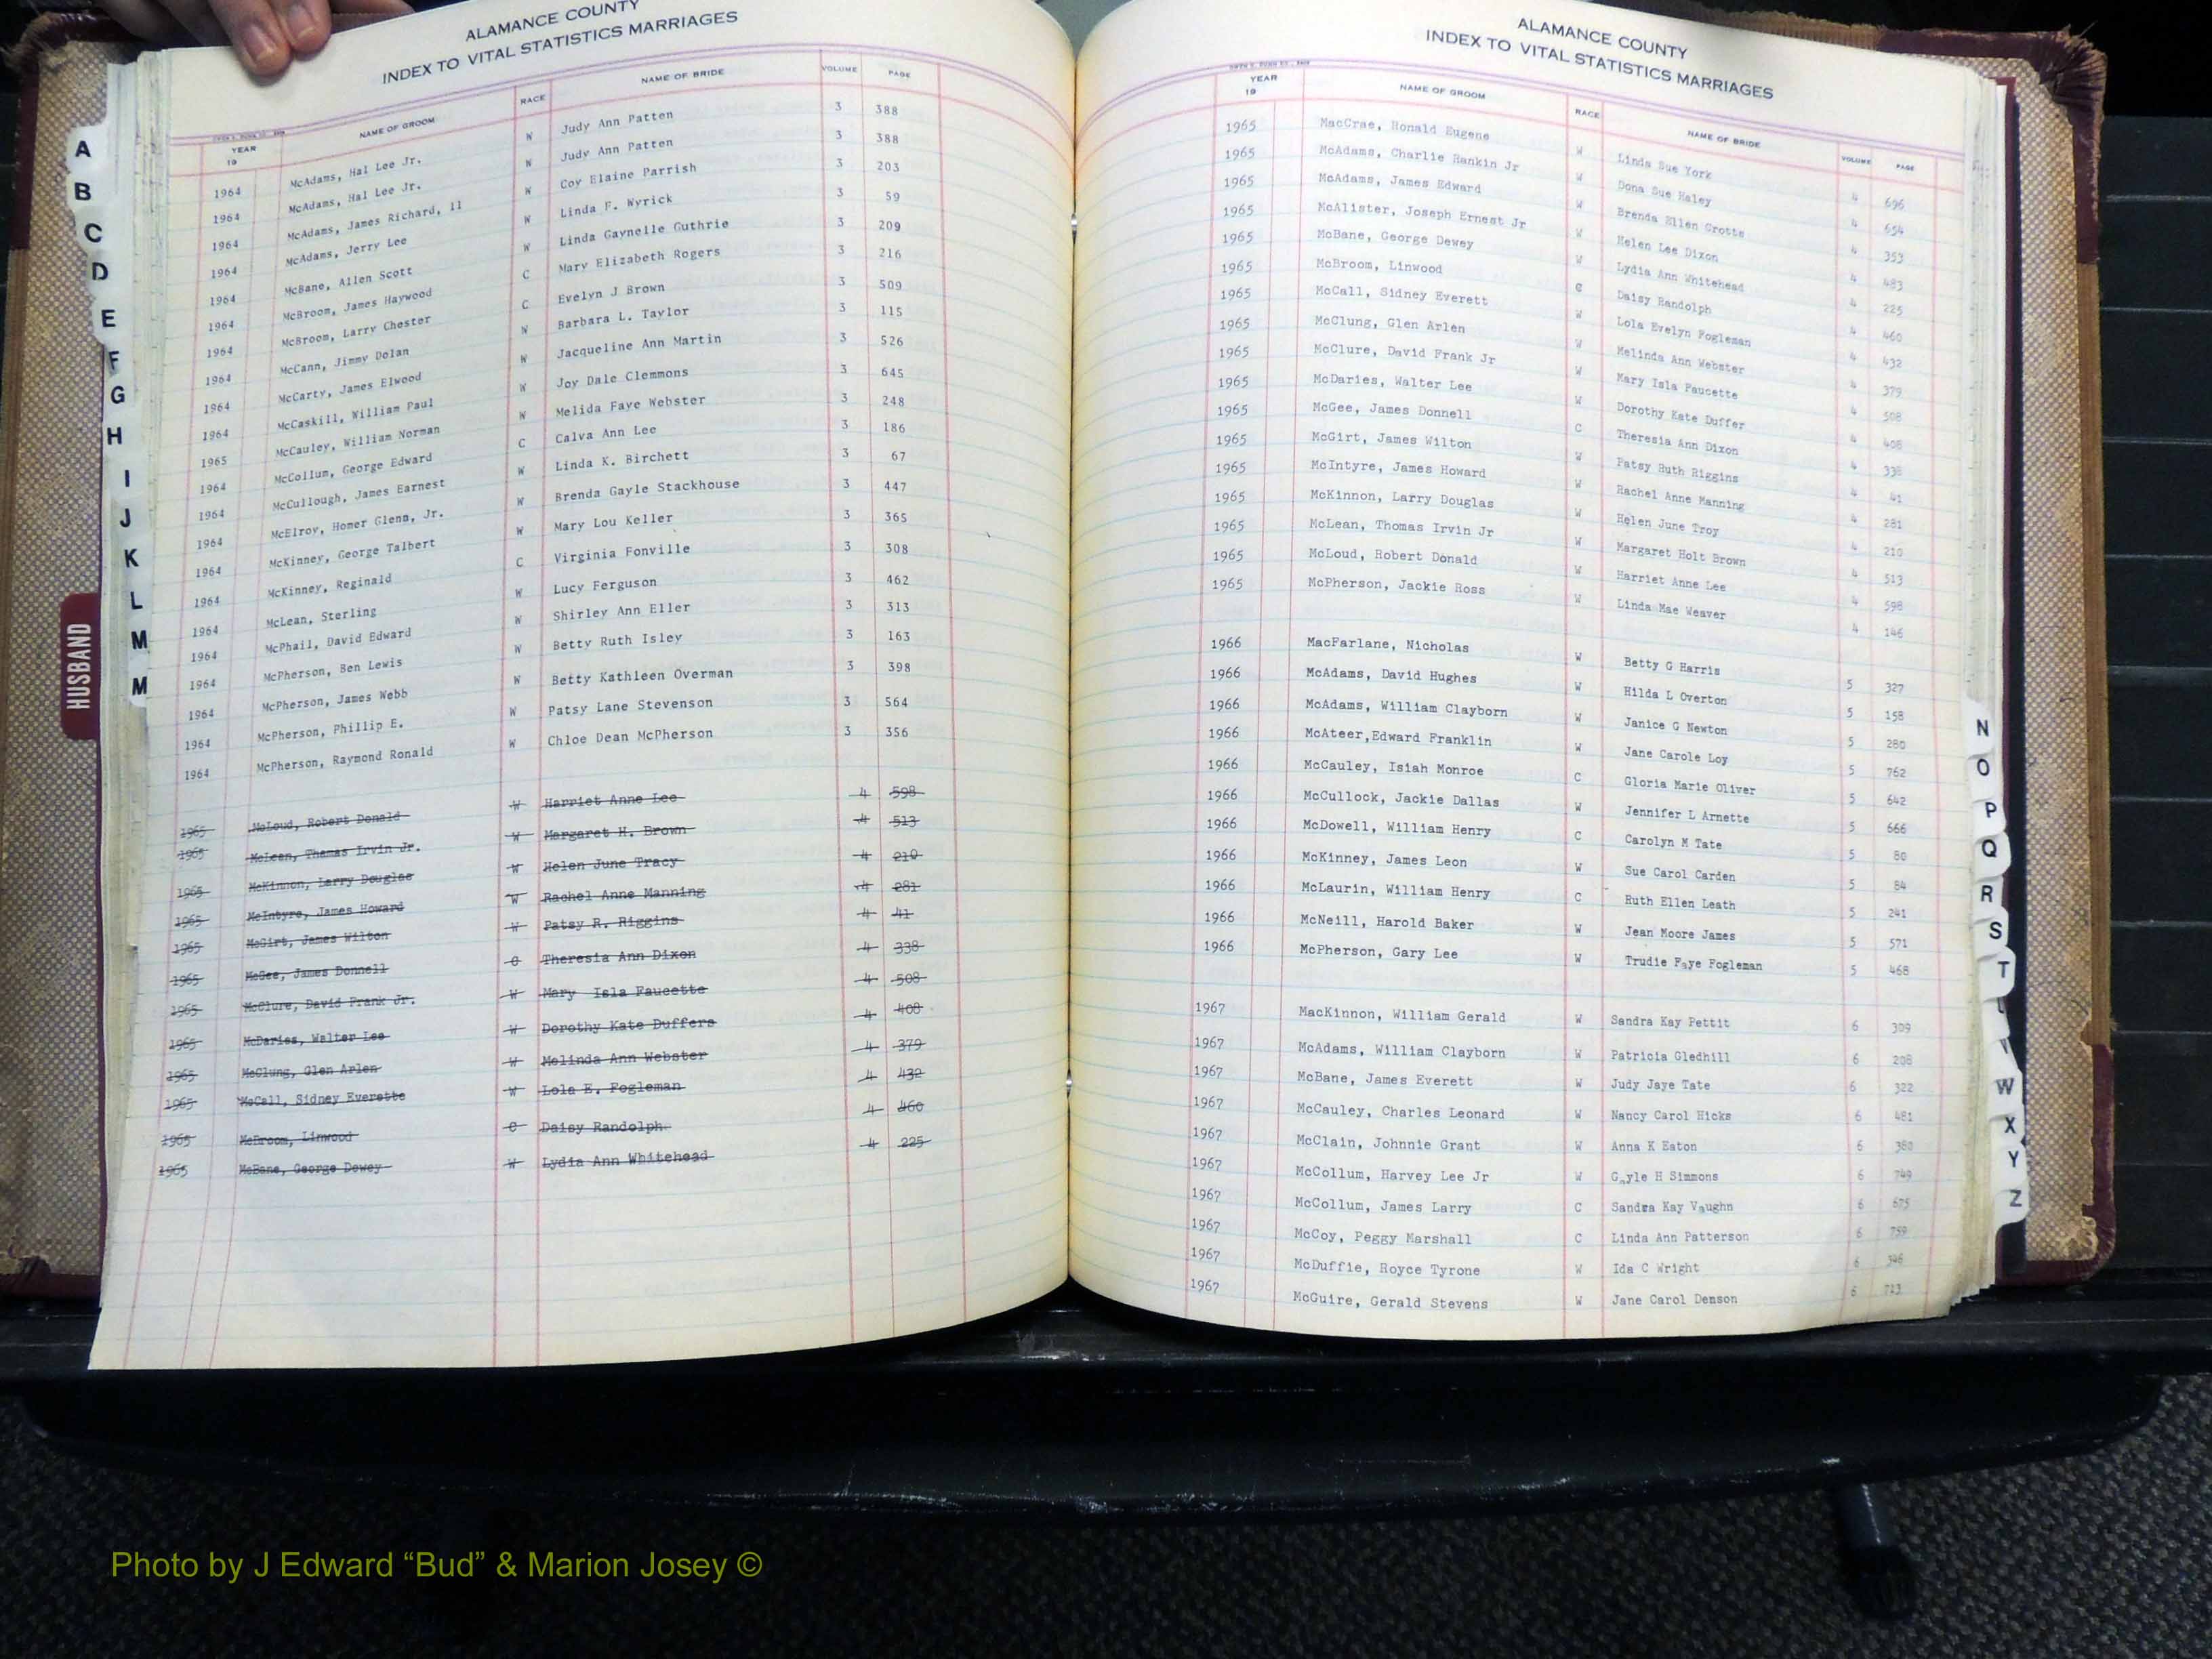 ALAMANCE COUNTY
INDEX TO VITAL STATISTICS MARRIAGES
YEAR 19 NAME OF GROOM RACE NAME OF BRIDE VOLUME PAGE
1964 McAdams, Hal Lee Jr. W Judy Ann Patten 3 388
1964 McAdams, Hal Lee Jr. W Judy Ann Patten 3 388
1964 McAdams, James Richard, 11 W Coy Elaine Parrish 3 203
1964 McAdams, Jerry Lee W Linda F. Wyrick 3 59
1964 McBane, Allen Scott W Linda Gaynelle Guthrie 3 209
1964 McBroom, James Haywood C Mary Elizabeth Rogers 3 216
1964 McBroom, Larry Chester C Evelyn J Brown 3 509
1964 McCann, Jimmy Dolan W Barbara L. Taylor 3 115
1964 McCarty, James Elwood W Jacqueline Ann Martin 3 526
1964 McCaskill, William Paul W Joy Dale Clemmons 3 645
1965 McCauley, William Norman W Melida Faye Webster 3 248
1964 McCollum, George Edward C Calva Ann Lee 3 186
1964 McCullough, James Earnest W Linda K. Birchett 3 67
1964 McElroy, Homer Glenn, Jr. W Brenda Gayle Stackhouse 3 447
1964 McKinney, George Talbert W Mary Lou Keller 3 365
1964 McKinney, Reginald C Virginia Fonville 3 308
1964 McLean, Sterling W Lucy Ferguson 3 462
1964 McPhail, David Edward W Shirley Ann Eller 3 313
1964 McPherson, Ben Lewis W Betty Ruth Isley 3 163
1964 McPherson, James Webb W Betty Kathleen Overman 3 398
1964 McPherson, Phillip E. W Patsy Lane Stevenson 3 564
1964 McPherson, Raymond Ronald W Chloe Dean McPherson 3 356
1965 McLoud, Robert Donald W Harriet Anne Lee 4 598
1965 McLean, Thomas Irvin Jr. W Margaret H. Brown 4 513
1965 McKinnon, Larry Douglas W Helen June Tracy 4 210
1965 McIntyre, James Howard W Rachel Anne Manning 4 281
1965 McGirt, James Wilton W Patsy R. Riggins 4 41
1965 McGee, James Donnell C Theresia Ann Dixon 4 338
1965 McClure, David Frank Jr. W Mary Isla Faucette 4 508
1965 McDaries, Walter Lee W Dorothy Kate Duffers 4 408
1965 McClung, Glen Arlen W Melinda Ann Webster 4 379
1965 McCall, Sidney Everette W Lola E. Fogleman 4 432
1965 McBroom, Linwood C Daisy Randolph 4 460
1965 McBane, George Dewey W Lydia Ann Whitehead 4 225
A
B
C
D
E
F
G
H
I
J
K
L
M
M
HUSBAND
ALAMANCE COUNTY
INDEX TO VITAL STATISTICS MARRIAGES
YEAR 19 NAME OF GROOM RACE NAME OF BRIDE VOLUME PAGE
1965 MacCrae, Ronald Eugene W Linda Sue York 4 696
1965 McAdams, Charlie Rankin Jr W Dona Sue Haley 4 654
1965 McAdams, James Edward W Brenda Ellen Grotts 4 353
1965 McAlister, Joseph Ernest Jr W Helen Lee Dixon 4 483
1965 McBane, George Dewey W Lydia Ann Whitehead 4 225
1965 McBroom, Linwood C Daisy Randolph 4 460
1965 McCall, Sidney Everett W Lola Evelyn Fogleman 4 432
1965 McClung, Glen Arlen W Melinda Ann Webster 4 379
1965 McClure, David Frank Jr W Mary Isla Faucette 4 508
1965 McDaries, Walter Lee W Dorothy Kate Duffer 4 408
1965 McGee, James Donnell C Theresia Ann Dixon 4 338
1965 McGirt, James Wilton W Patsy Ruth Riggins 4 41
1965 McIntyre, James Howard W Rachel Anne Manning 4 281
1965 McKinnon, Larry Douglas W Helen June Troy 4 210
1965 McLean, Thomas Irvin Jr W Margaret Holt Brown 4 513
1965 McLoud, Robert Donald W Harriet Anne Lee 4 598
1965 McPherson, Jackie Ross W Linda Mae Weaver 4 146
1966 MacFarlane, Nicholas W Betty G Harris 5 327
1966 McAdams, David Hughes W Hilda L Overton 5 158
1966 McAdams, William Clayborn W Janice G Newton 5 280
1966 McAteer,Edward Franklin W Jane Carole Loy 5 762
1966 McCauley, Isiah Monroe C Gloria Marie Oliver 5 642
1966 McCullock, Jackie Dallas W Jennifer L Arnette 5 666
1966 McDowell, William Henry C Carolyn M Tate 5 80
1966 McKinney, James Leon W Sue Carol Carden 5 84
1966 McLaurin, William Henry C Ruth Ellen Leath 5 241
1966 McNeill, Harold Baker W Jean Moore James 5 571
1966 McPherson, Gary Lee W Trudie Faye Fogleman 5 468
1967 MacKinnon, William Gerald W Sandra Kay Pettit 6 309
1967 McAdams, William Clayborn W Patricia Gledhill 6 208
1967 McBane, James Everett W Judy Jaye Tate 6 322
1967 McCauley, Charles Leonard W Nancy Carol Hicks 6 481
1967 McClain, Johnnie Grant W Anna K Eaton 6 380
1967 McCollum, Harvey Lee Jr W Gayle H Simmons 6 749
1967 McCollum, James Larry C Sandra Kay Vaughn 6 675
1967 McCoy, Peggy Marshall C Linda Ann Patterson 6 759
1967 McDuffie, Royce Tyrone W Ida C Wright 6 346
1967 McGuire, Gerald Stevens W Jane Carol Denson 6 713
N
O
P
Q
R
S
T
W
X
Y
Z
Photo by J Edward “Bud” & Marion Josey ©